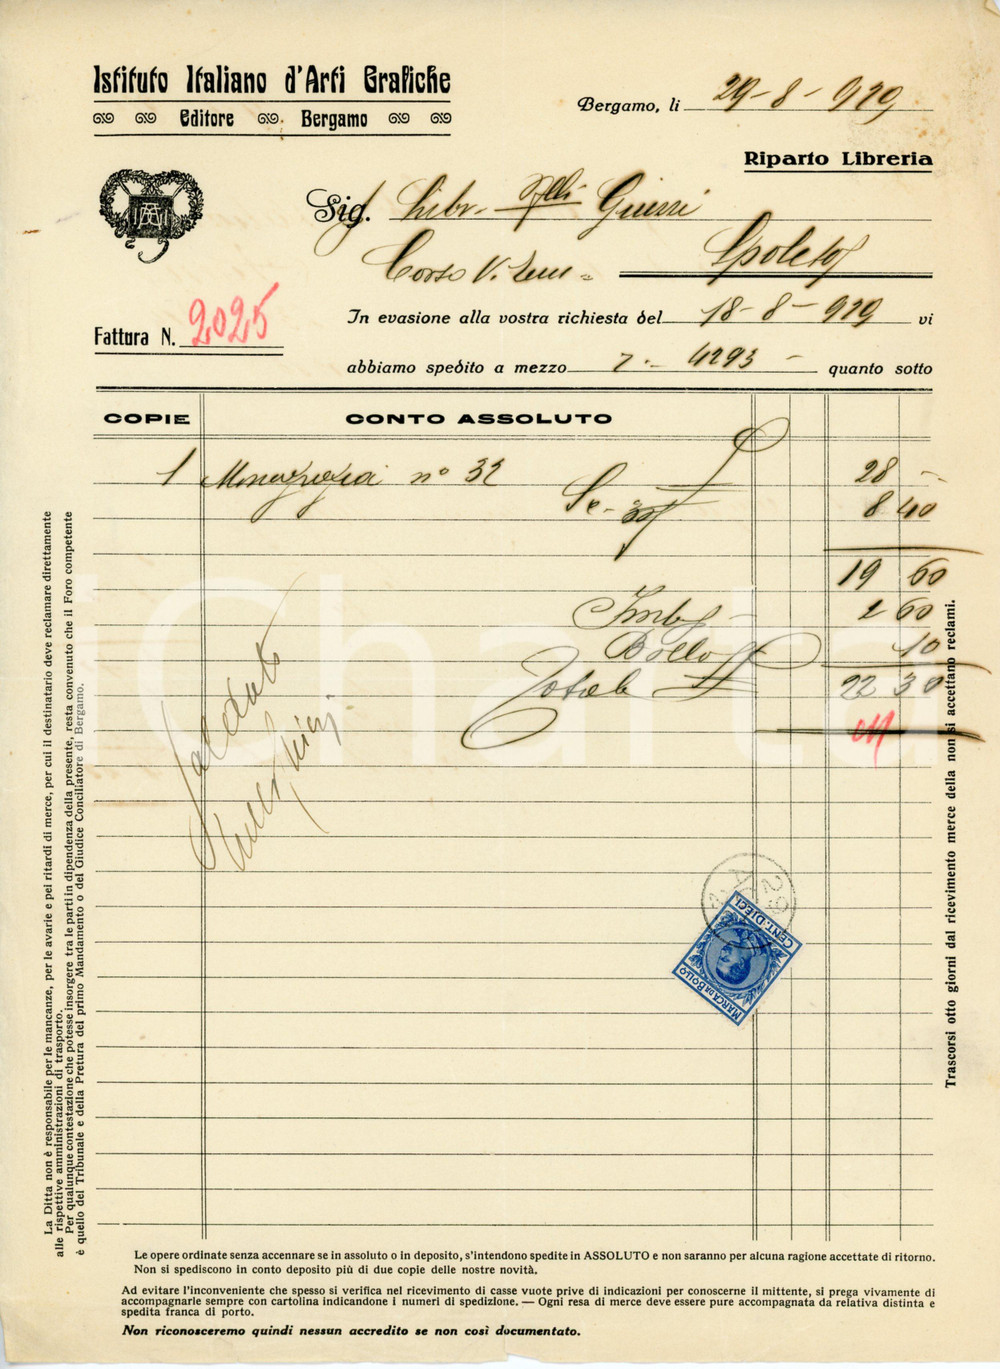 Istituto Italiano d'Arti Grafiche
Editore Bergamo
Bergamo, li 29-8-929
Riparto Libreria
Sig. Libr. Flli
Corso V. Em = Spoleto
Fattura N. 2025
In evasione alla vostra richiesta del 18-8-929 vi
abbiamo spedito a mezzo 7.- 4293 - quanto sotto
COPIE CONTO ASSOLUTO
1 Monografia n° 32 28 -
Sc. 8 40
19 60
Imb. 2 60
Bollo 10
Totale 22 30
Saldato
iCharta
CENT. DIECI
MARCA DA BOLLO
La Ditta non è responsabile per le mancanze, per le avarie e pei ritardi di merce, per cui il destinatario deve reclamare direttamente
alle rispettive amministrazioni di trasporto.
Per qualunque contestazione che potesse insorgere tra le parti in dipendenza della presente, resta convenuto che il Foro competente
è quello del Tribunale e della Pretura del primo Mandamento o del Giudice Conciliatore di Bergamo.
Trascorsi otto giorni dal ricevimento merce della non si accettano reclami.
Le opere ordinate senza accennare se in assoluto o in deposito, s'intendono spedite in ASSOLUTO e non saranno per alcuna ragione accettate di ritorno.
Non si spediscono in conto deposito più di due copie delle nostre novità.
Ad evitare l'inconveniente che spesso si verifica nel ricevimento di casse vuote prive di indicazioni per conoscerne il mittente, si prega vivamente di
accompagnarle sempre con cartolina indicandone i numeri di spedizione. — Ogni resa di merce deve essere pure accompagnata da relativa distinta e
spedita franca di porto.
Non riconosceremo quindi nessun accredito se non così documentato.